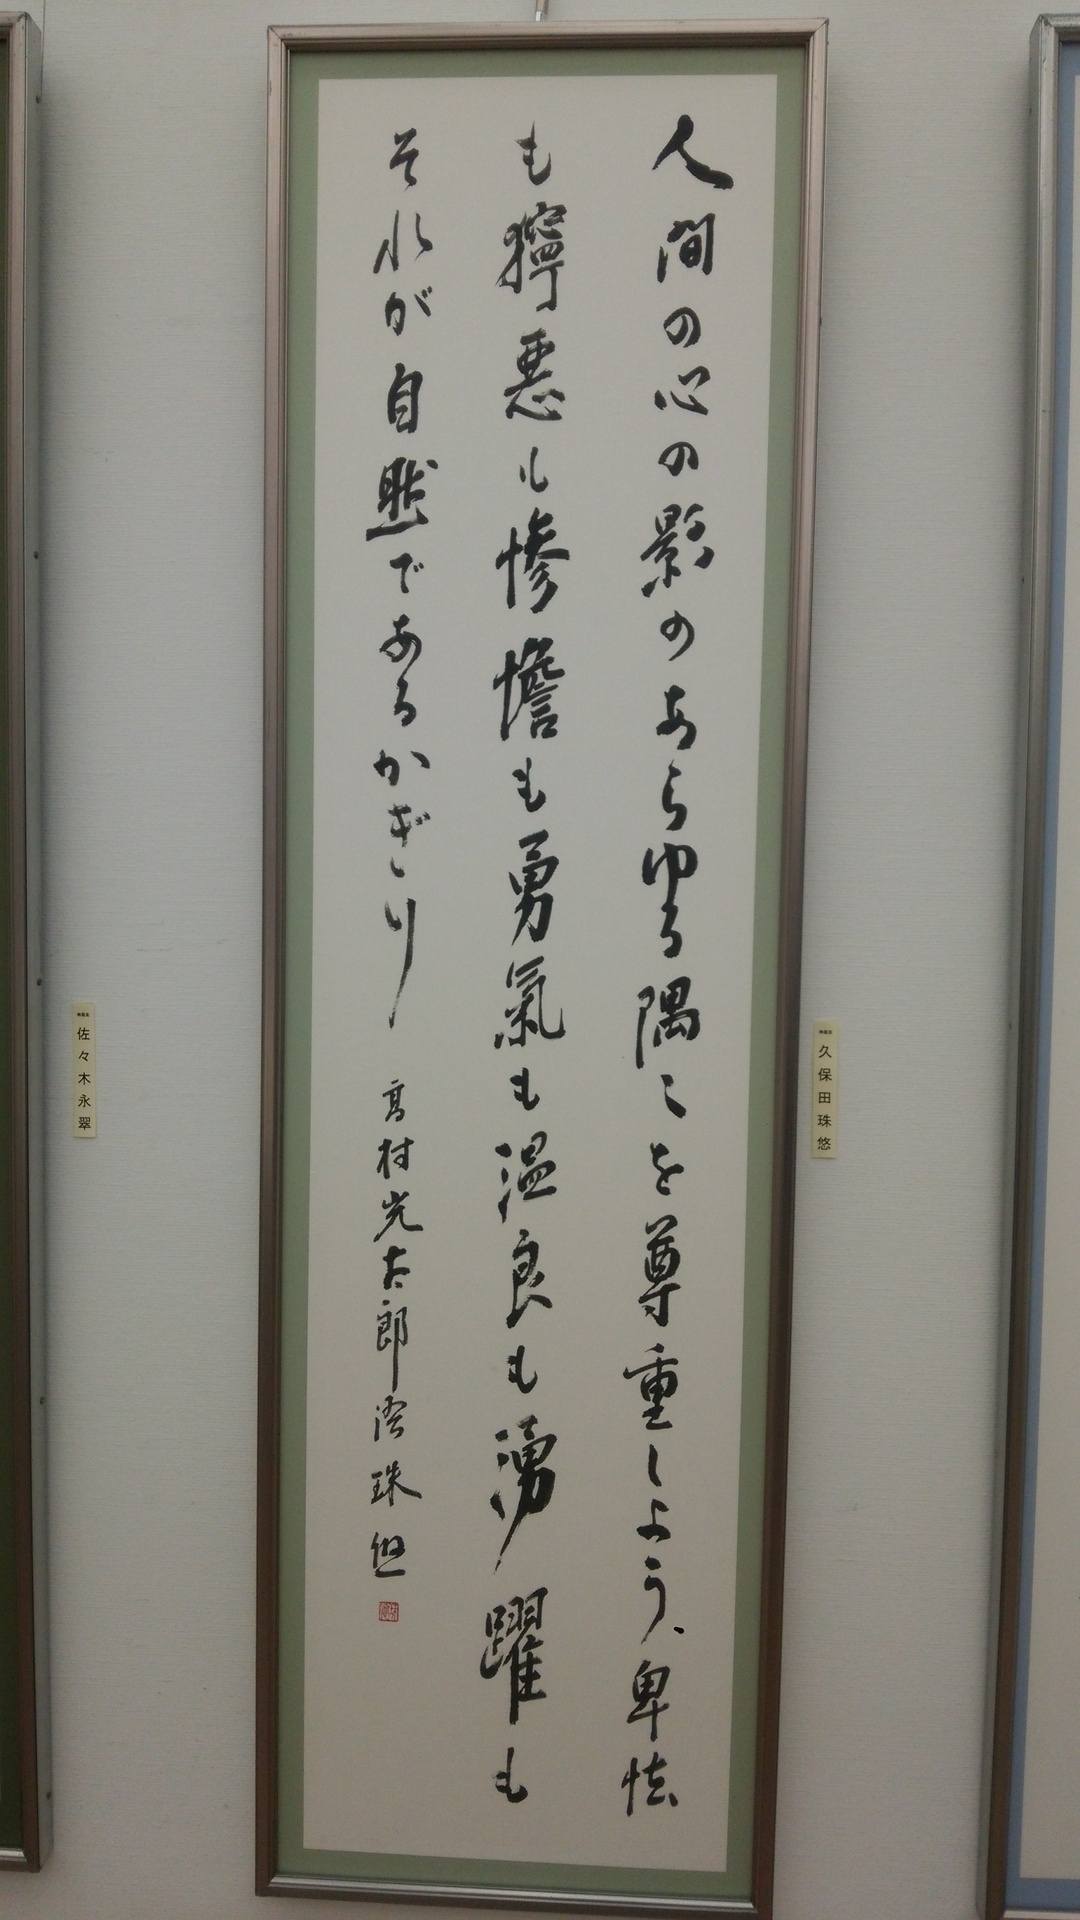 人間の心の影のあらゆる隅〻を尊重しよう、卑怯
も獰悪も惨憺も勇氣も温良も湧躍も
それが自然であるかぎり 高村光太郎 珠悠
久保田珠悠
佐々木永翠